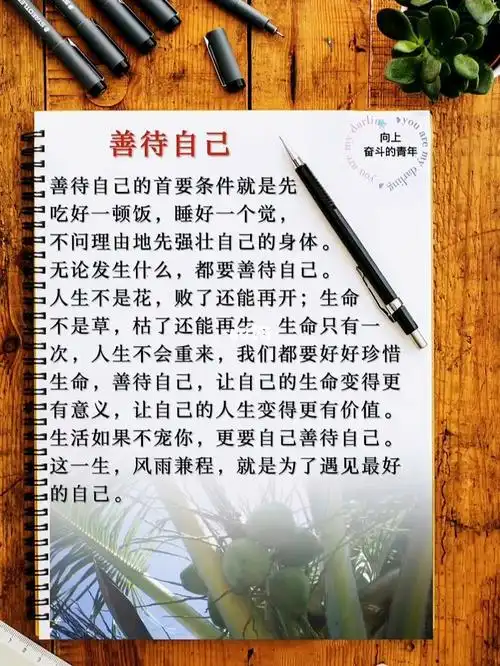 善待自己
向上
奋斗的青年
you are my darling
you are my darling
善待自己的首要条件就是先
吃好一顿饭，睡好一个觉，
不问理由地先强壮自己的身体。
无论发生什么，都要善待自己。
人生不是花，败了还能再开；生命
不是草，枯了还能再生。生命只有一
次，人生不会重来，我们都要好好珍惜
生命，善待自己，让自己的生命变得更
有意义，让自己的人生变得更有价值。
生活如果不宠你，更要自己善待自己。
这一生，风雨兼程，就是为了遇见最好
的自己。